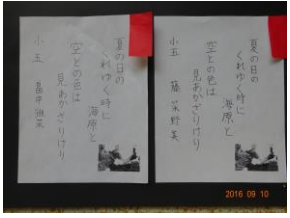 夏の日の
くれゆく時に
海原と
空との色は
見あかざりけり
小五
夏の日の
くれゆく時に
海原と
空との色は
見あかざりけり
小五 藤 菜野美
2016 09 10